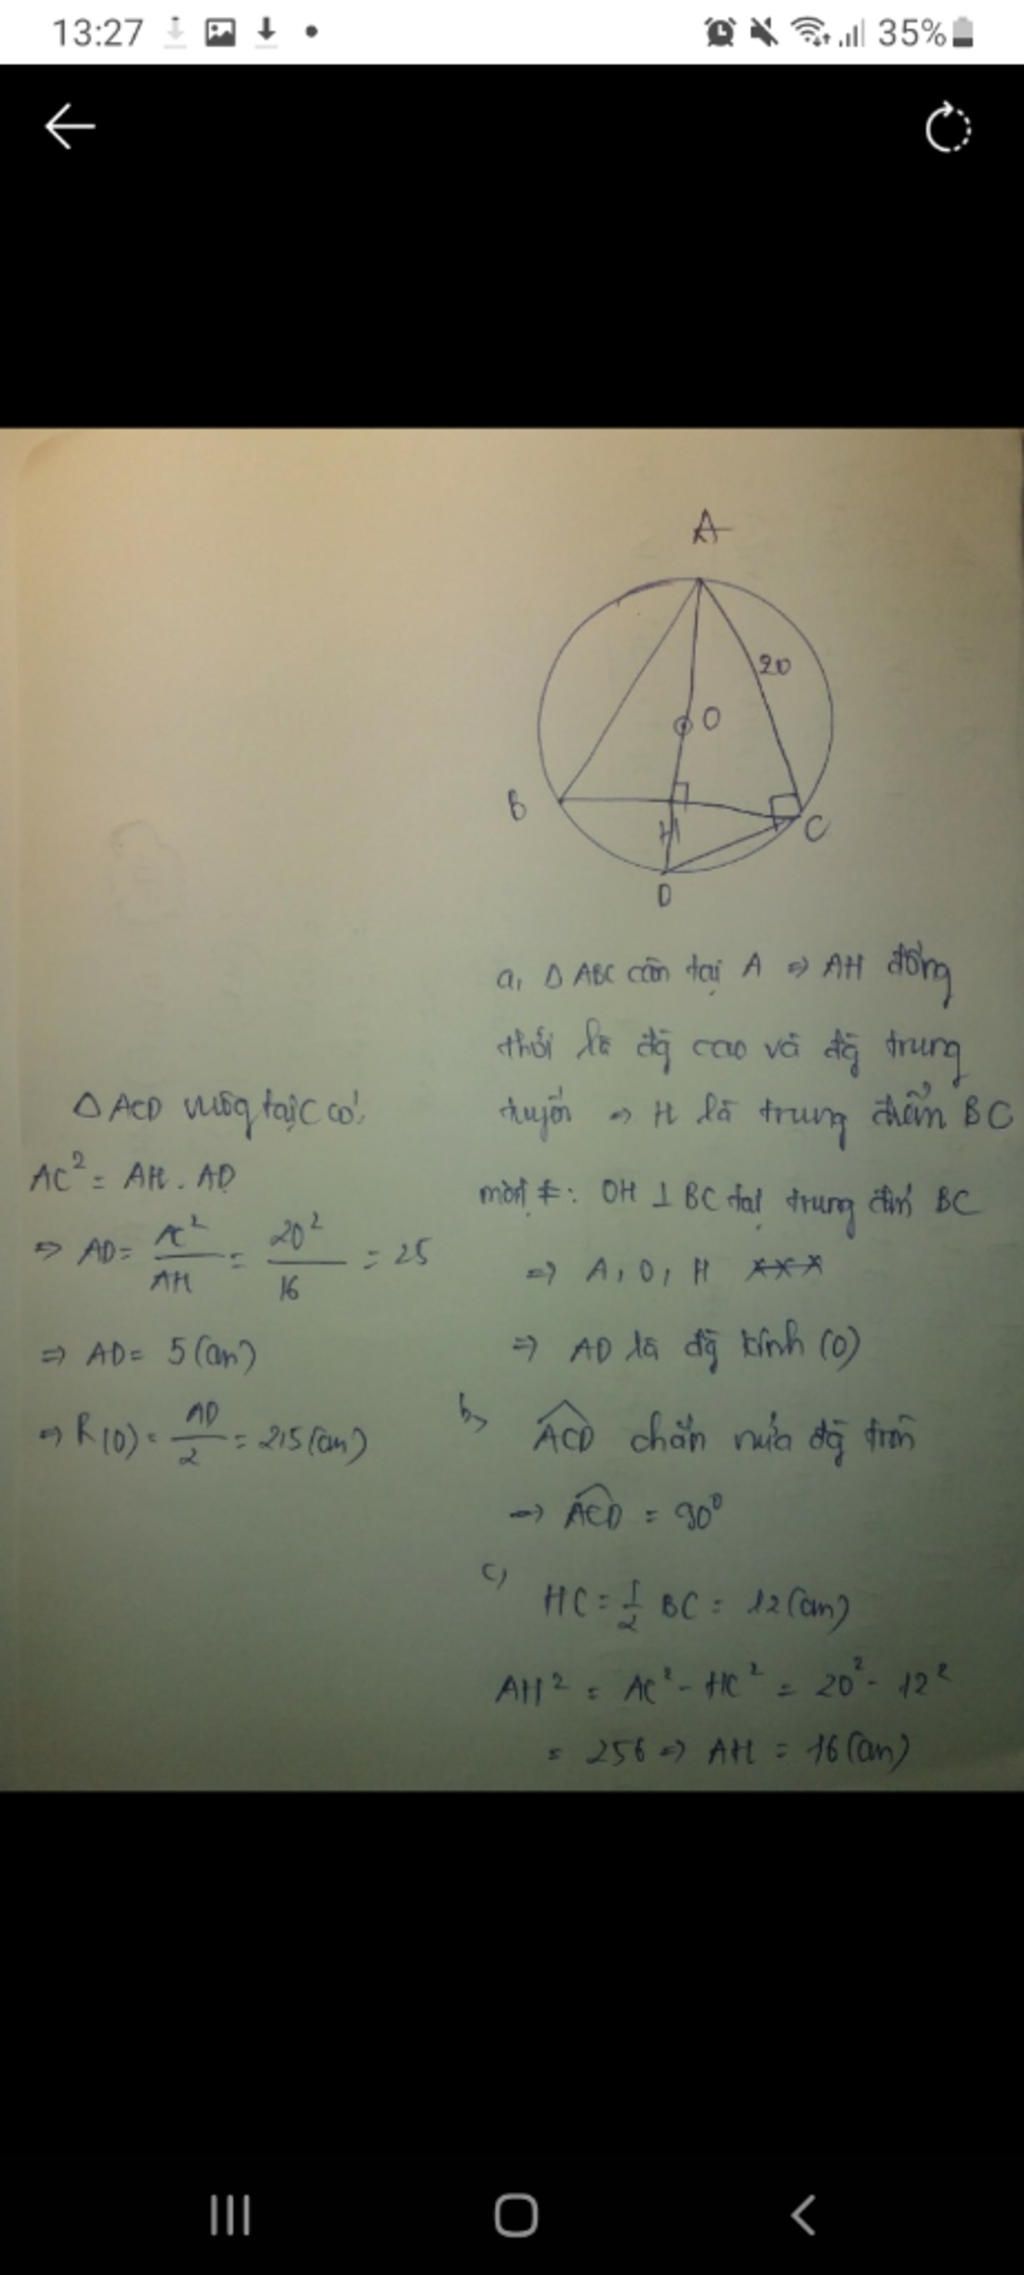 13:27
35%
A
20
O
B
H
C
D
a, Δ ABC cân tại A ⇒ AH đồng
thời là đg cao và đg trung
tuyến ⇒ H là trung điểm BC
OH ⊥ BC tại trung điểm BC
⇒ A, O, H
⇒ AD là đg kính (O)
b, ACD chắn nửa đg tròn
⇒ ACD = 90°
c, HC = 1/2 BC = 12 (cm)
AH² = AC² - HC² = 20² - 12²
= 256 ⇒ AH = 16 (cm)
Δ ACD vuôg tại C có:
AC² = AH . AD
⇒ AD = AC²/AH = 20²/16 = 25
⇒ AD = 5 (cm)
⇒ R(O) = AD/2 = 2,5 (cm)